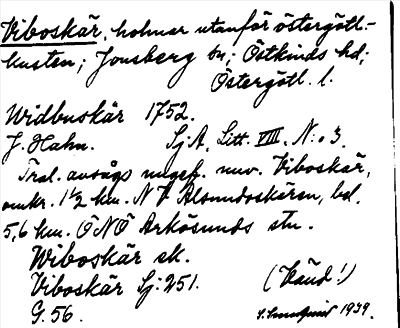 Viboskär, holmar utanför östergötl.-
kusten; Jonsberg sn; Östkinds hd;
Östergötl. l.
Widbuskär 1752.
J. Hahn. SjA, Litt. VIII. N:o 3.
Tral. avsågs ungef. nuv. Viboskär,
omkr. 1½ km. NV Alsundoskären, bel.
5,6 km. ÖNÖ Arkösunds stn.
Wiboskär ek.
Viboskär Sj:251. (Vänd!)
G.56. S. Sundqvist 1939.